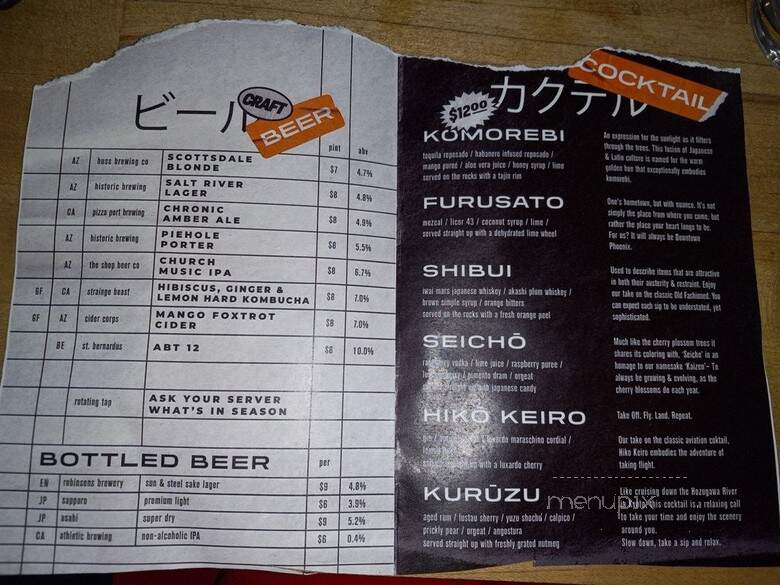 ビール
CRAFT
BEER
pint abv
AZ huss brewing co SCOTTSDALE BLONDE $7 4.7%
AZ historic brewing SALT RIVER LAGER $8 4.8%
CA pizza port brewing CHRONIC AMBER ALE $8 4.9%
AZ historic brewing PIEHOLE PORTER $8 5.5%
AZ the shop beer co CHURCH MUSIC IPA $8 6.7%
GF CA strainge beast HIBISCUS, GINGER & LEMON HARD KOMBUCHA $8 7.0%
GF AZ cider corps MANGO FOXTROT CIDER $8 7.0%
BE st. bernardus ABT 12 $8 10.0%
rotating tap ASK YOUR SERVER WHAT'S IN SEASON
BOTTLED BEER per
EN robinsons brewery sun & steel sake lager $9 4.8%
JP sapporo premium light $6 3.9%
JP asahi super dry $9 5.2%
CA athletic brewing non-alcoholic IPA $6 0.4%
カクテル
COCKTAIL
$1200
KOMOREBI
tequila reposado / habanero infused reposado /
mango pureé / aloe vera juice / honey syrup / lime
served on the rocks with a tajin rim
An expression for the sunlight as it filters
through the trees. This fusion of Japanese
& Latin culture is named for the warm
golden hue that exceptionally embodies
komorebi.
FURUSATO
mezcal / licor 43 / coconut syrup / lime /
served straight up with a dehydrated lime wheel
One's hometown, but with nuance. It's not
simply the place from where you came, but
rather the place your heart longs to be.
For us? It will always be Downtown
Phoenix.
SHIBUI
iwai mars japanese whiskey / akashi plum whiskey /
brown simple syrup / orange bitters
served on the rocks with a fresh orange peel
Used to describe items that are attractive
in both their austerity & restraint. Enjoy
our take on the classic Old Fashioned. You
can expect each sip to be understated, yet
sophisticated.
SEICHŌ
raspberry vodka / lime juice / raspberry puree /
pimento dram / orgeat
straight up with japanese candy
Much like the cherry plossom trees it
shares its coloring with, 'Seicho' is an
homage to our namesake 'Kaizen'– To
always be growing & evolving, as the
cherry blossoms do each year.
HIKŌ KEIRO
gin / luxardo maraschino cordial /
up with a luxardo cherry
Take Off. Fly. Land. Repeat.
Our take on the classic aviation cuktail,
Hiko Keiro embodies the adventure of
taking flight.
KURŪZU
aged rum / lustau sherry / yuzu shochú / calpico /
prickly pear / orgeat / angostura
served straight up with freshly grated nutmeg
Like cruising down the Hozugawa River
this cocktail is a relaxing call
to take your time and enjoy the scenery
around you.
Slow down, take a sip and relax.
menupix